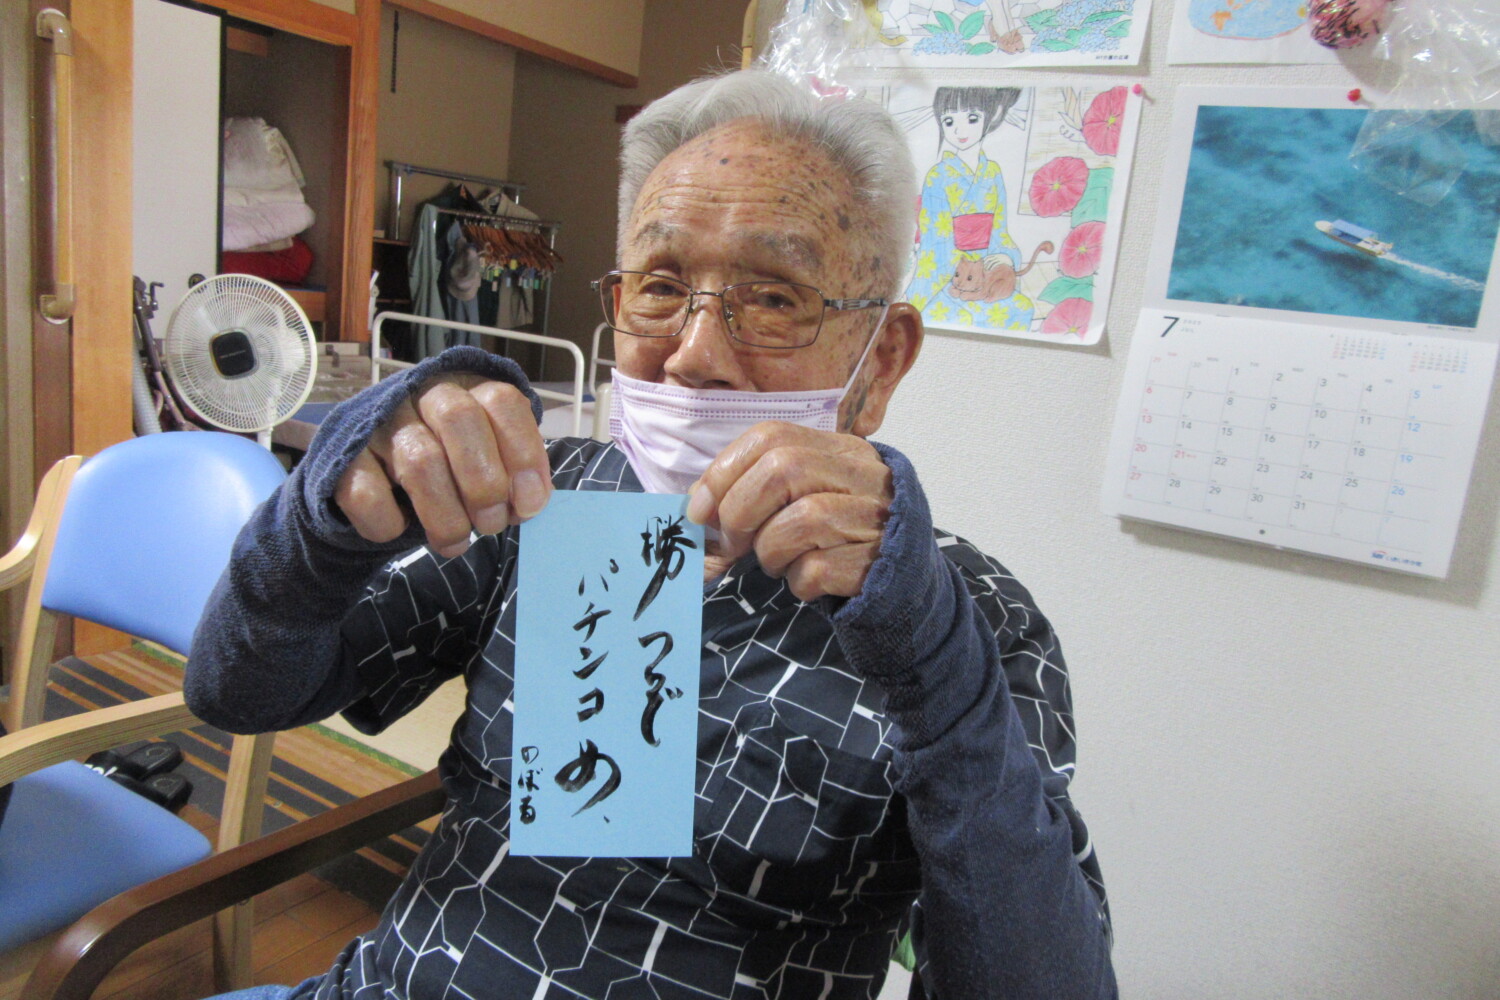 勝つぞ
パチンコめ、
のぼる
7
1 2 3 4 5
6 7 8 9 10 11 12
13 14 15 16 17 18 19
20 21 22 23 24 25 26
27 28 29 30 31